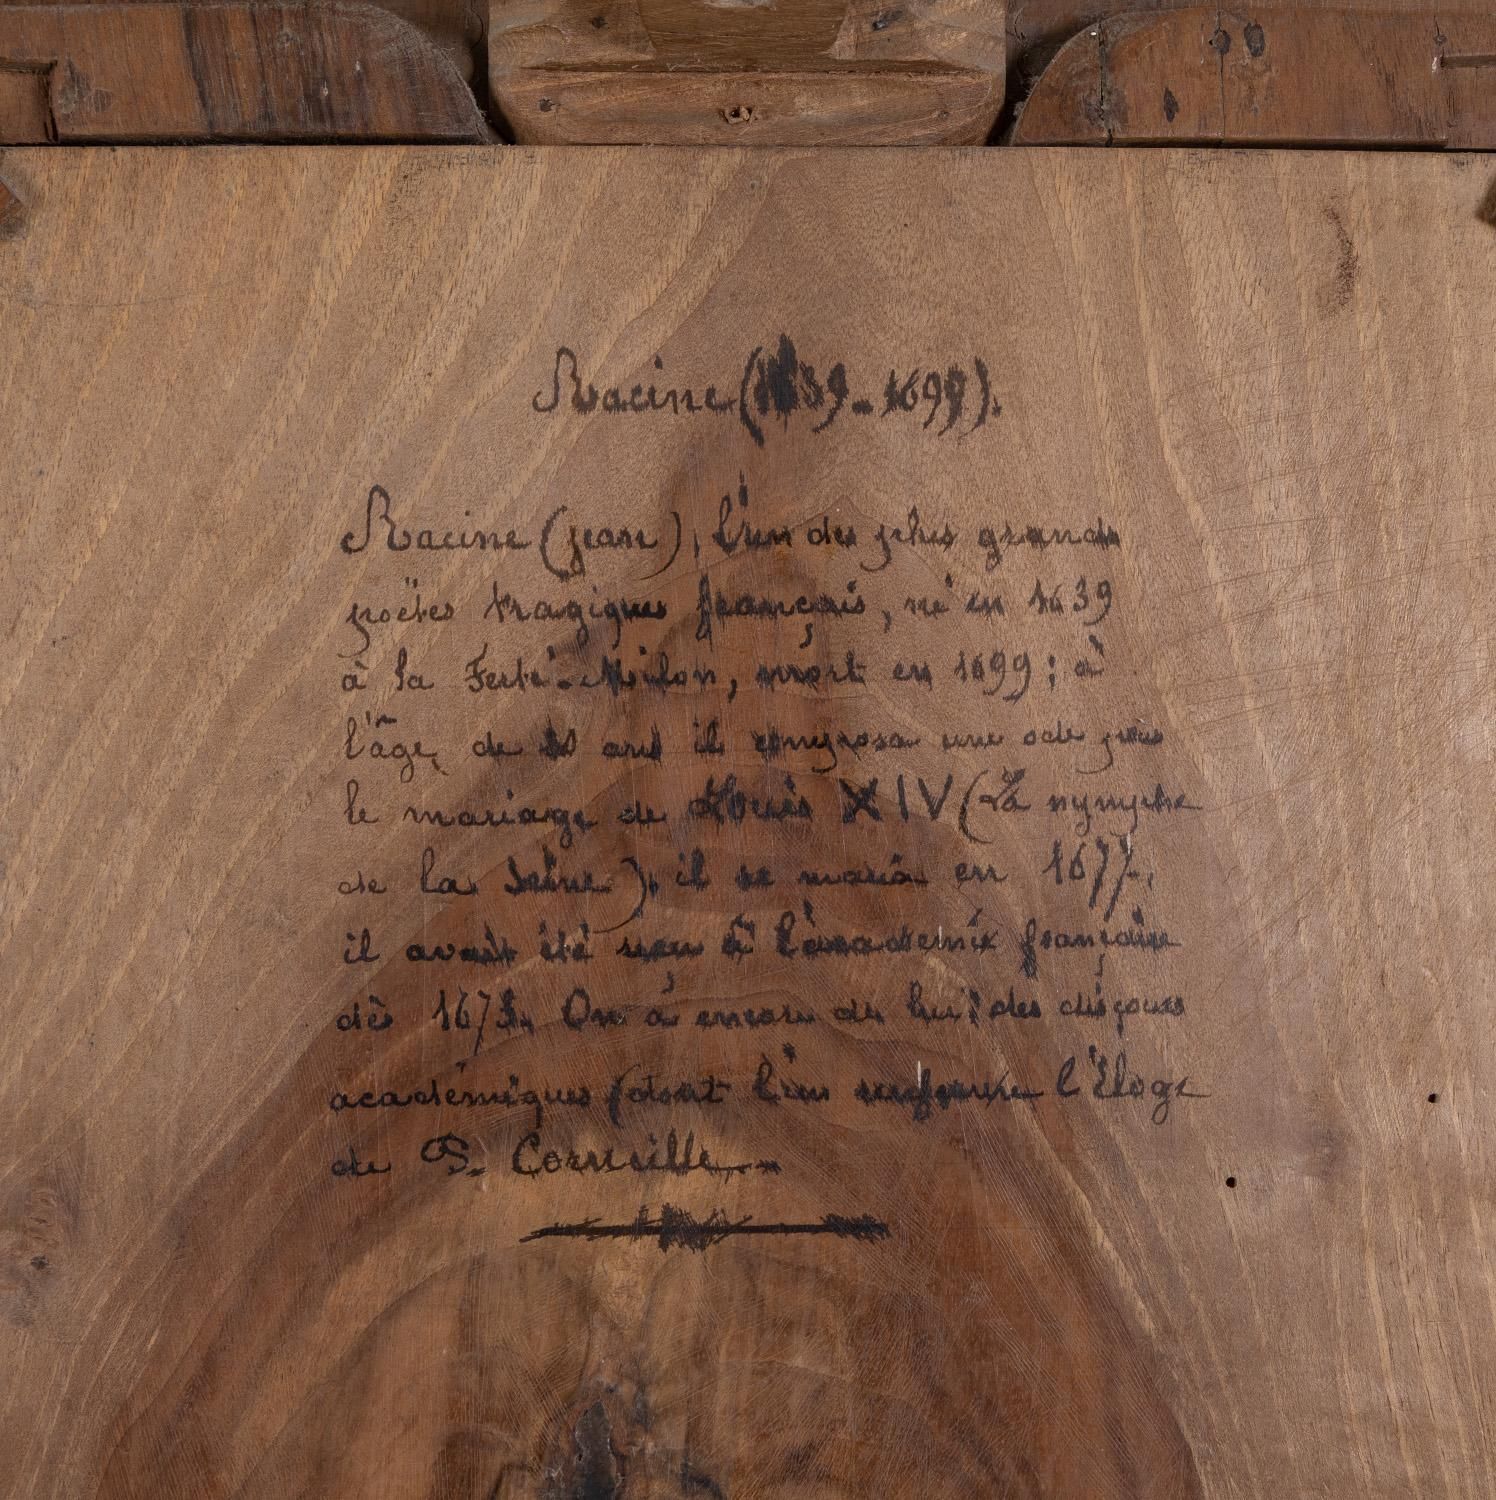 Racine (1639 - 1699).
Racine (jean), l'un des plus grands
poëtes tragiques français, né en 1639
à la Ferté-Milon, mort en 1699; à
l'âge de 20 ans il composa une ode pour
le mariage de Louis XIV (La nymphe
de la Seine), il se maria en 1677,
il avait été reçu à l'académie française
dès 1673. On a encore de lui: des discours
académiques (dont l'un renferme l'Éloge
de P. Corneille.